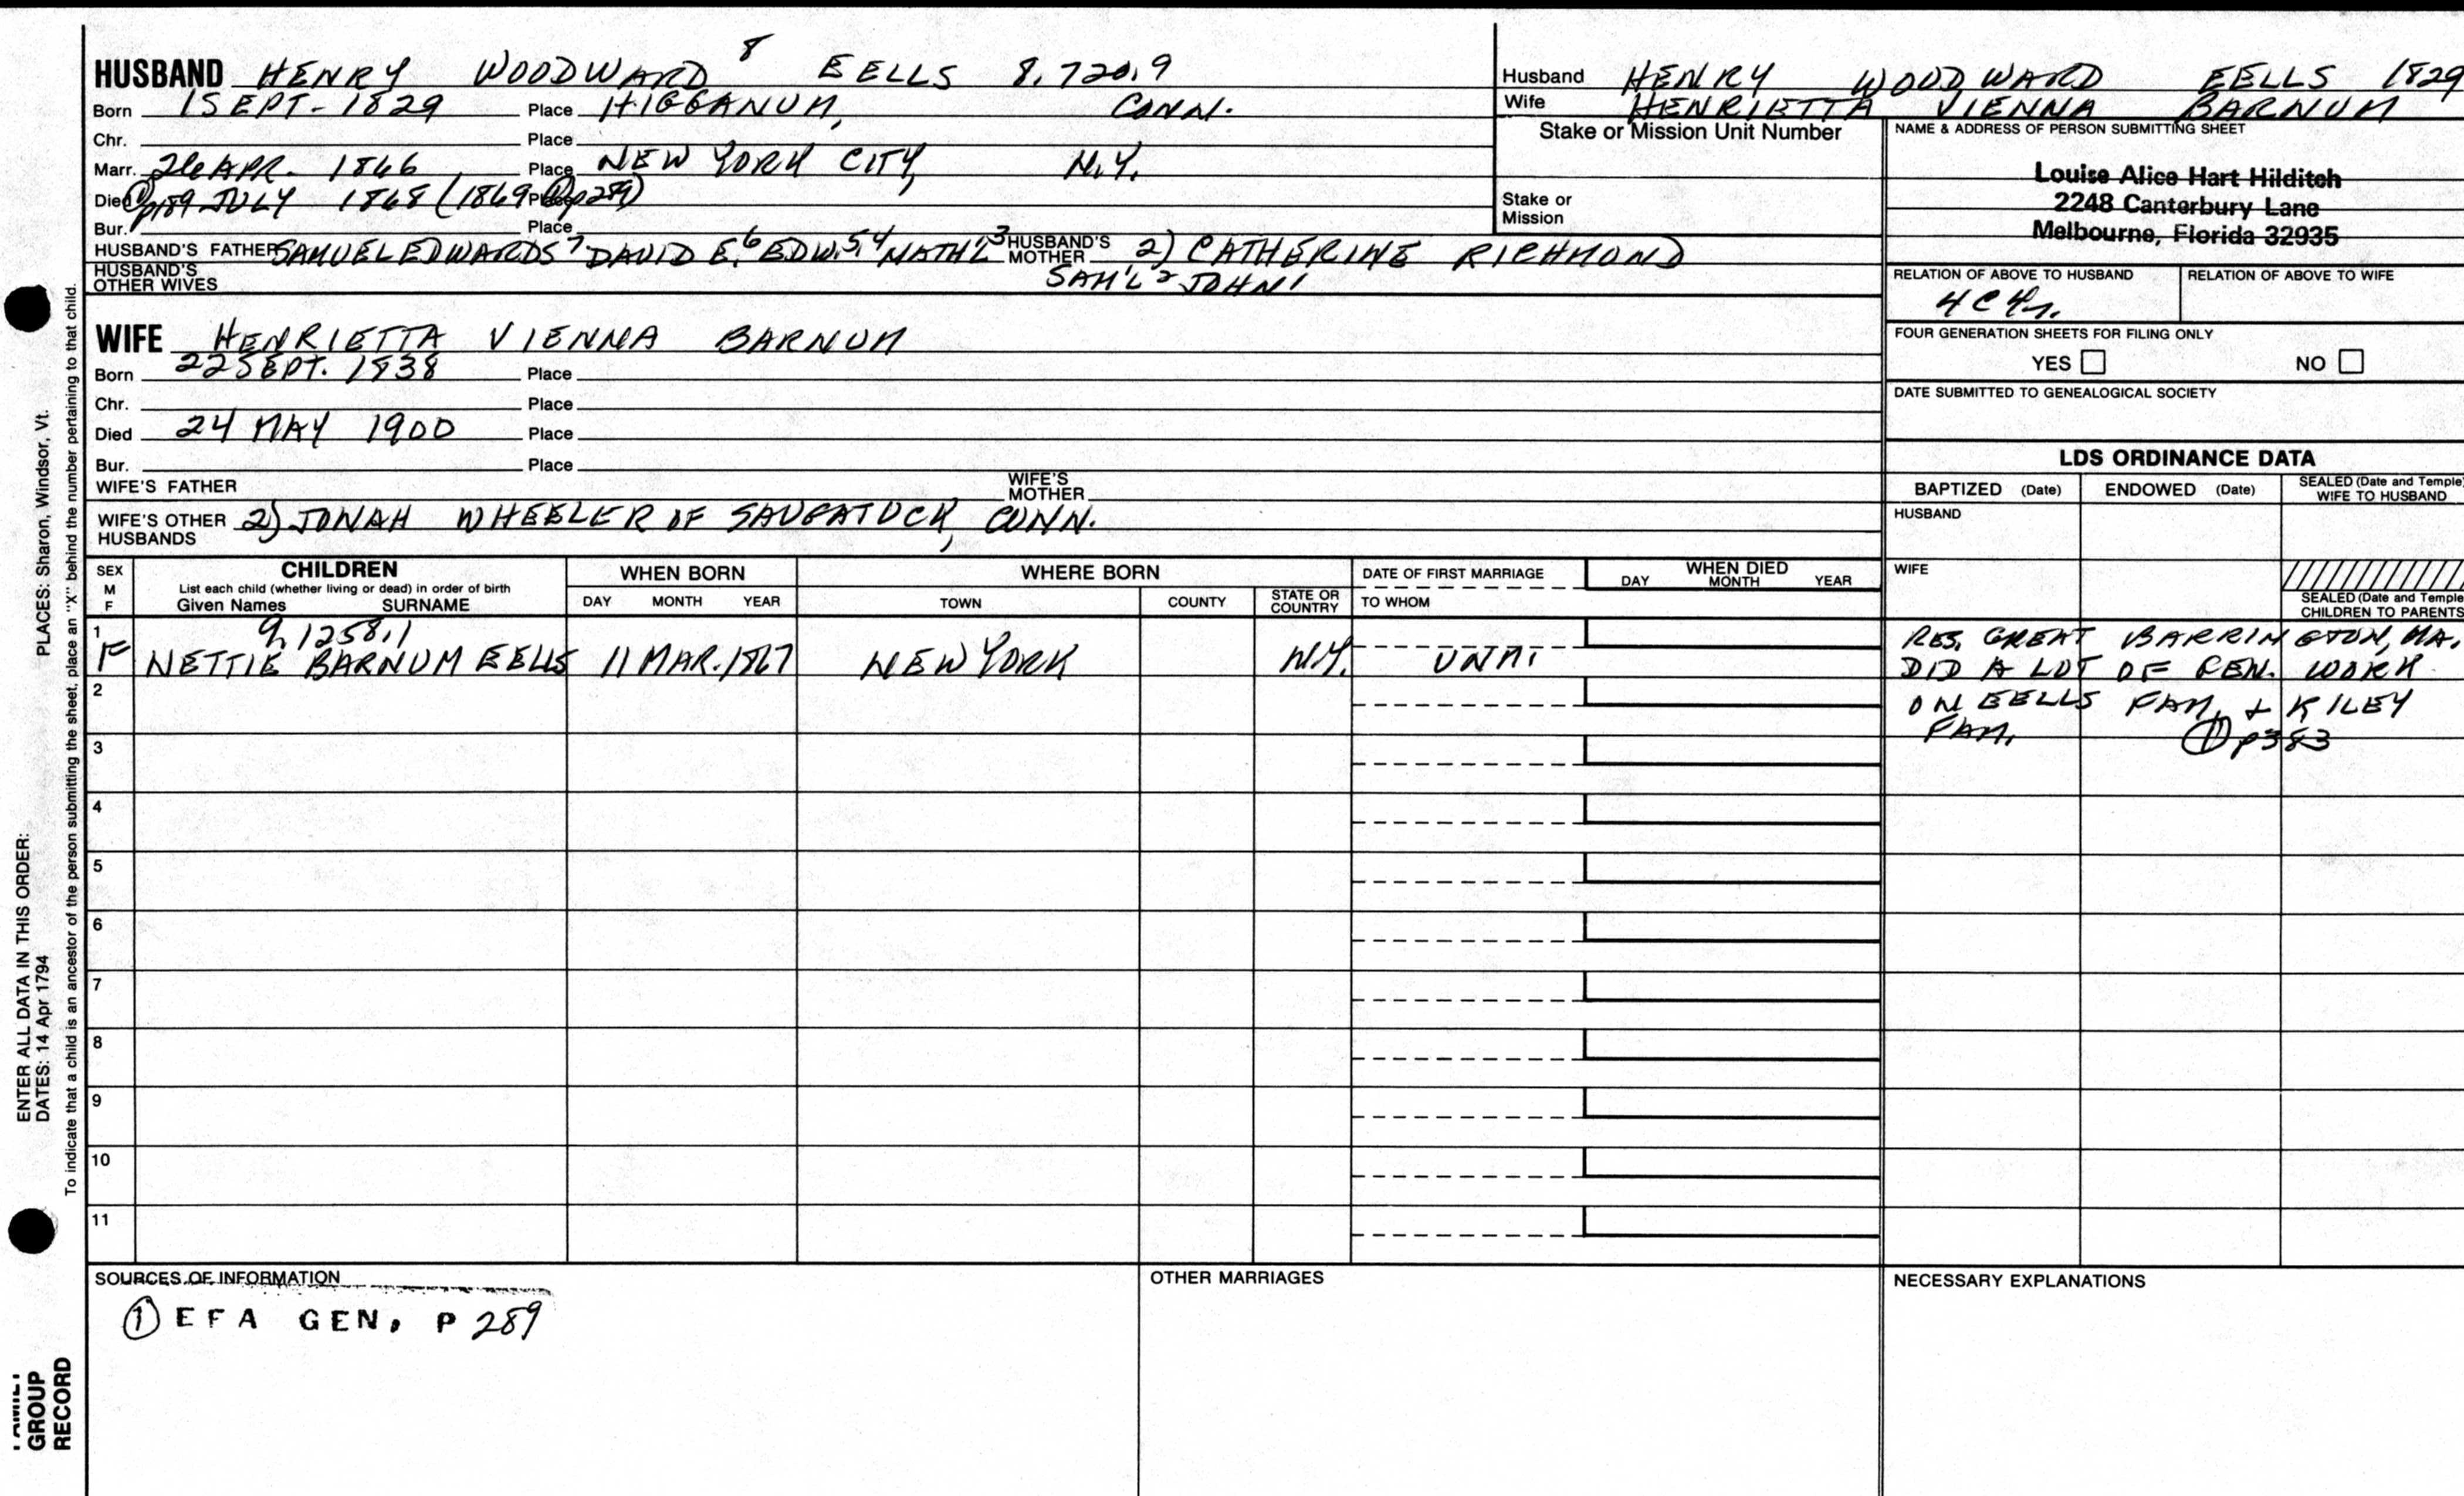 HUSBAND HENRY WOODWARD 8 EELLS 8,720.9
Born 1 SEPT - 1829 Place HIGGANUM, CONN.
Chr. Place
Marr. 26 APR. 1866 Place NEW YORK CITY, N.Y.
Died ① p189 JULY 1868 (1869 ① p289) Place
Bur. Place
HUSBAND'S FATHER SAMUEL EDWARDS 7 DAVID E. 6 EDW. 5 4 NATH'L 3 HUSBAND'S MOTHER 2) CATHERINE RICHMOND
SAM'L 2 JOHN 1
HUSBAND'S OTHER WIVES
WIFE HENRIETTA VIENNA BARNUM
Born 22 SEPT. 1838 Place
Chr. Place
Died 24 MAY 1900 Place
Bur. Place
WIFE'S FATHER WIFE'S MOTHER
WIFE'S OTHER HUSBANDS 2) JONAH WHEELER OF SAUGATUCK, CONN.
Husband HENRY WOODWARD EELLS 1829
Wife HENRIETTA VIENNA BARNUM
Stake or Mission Unit Number
Stake or
Mission
NAME & ADDRESS OF PERSON SUBMITTING SHEET
Louise Alice Hart Hilditch
2248 Canterbury Lane
Melbourne, Florida 32935
RELATION OF ABOVE TO HUSBAND RELATION OF ABOVE TO WIFE
4C4r.
FOUR GENERATION SHEETS FOR FILING ONLY
YES NO
DATE SUBMITTED TO GENEALOGICAL SOCIETY
LDS ORDINANCE DATA
BAPTIZED (Date) ENDOWED (Date) SEALED (Date and Temple) WIFE TO HUSBAND
HUSBAND
WIFE
SEALED (Date and Temple) CHILDREN TO PARENTS
SEX M F
CHILDREN
List each child (whether living or dead) in order of birth
Given Names SURNAME
WHEN BORN
DAY MONTH YEAR
WHERE BORN
TOWN COUNTY STATE OR COUNTRY
DATE OF FIRST MARRIAGE
TO WHOM
WHEN DIED
DAY MONTH YEAR
1 9,1258.1
F NETTIE BARNUM EELLS 11 MAR. 1867 NEW YORK N.Y. UNM.
RES. GREAT BARRINGTON, MA.
DID A LOT OF GEN. WORK
ON EELLS FAM. & KILEY
FAM. ① p383
2
3
4
5
6
7
8
9
10
11
SOURCES OF INFORMATION
① EFA GEN. P 289
OTHER MARRIAGES
NECESSARY EXPLANATIONS
ENTER ALL DATA IN THIS ORDER:
DATES: 14 Apr 1794 PLACES: Sharon, Windsor, Vt.
To indicate that a child is an ancestor of the person submitting the sheet, place an "X" behind the number pertaining to that child.
FAMILY
GROUP
RECORD